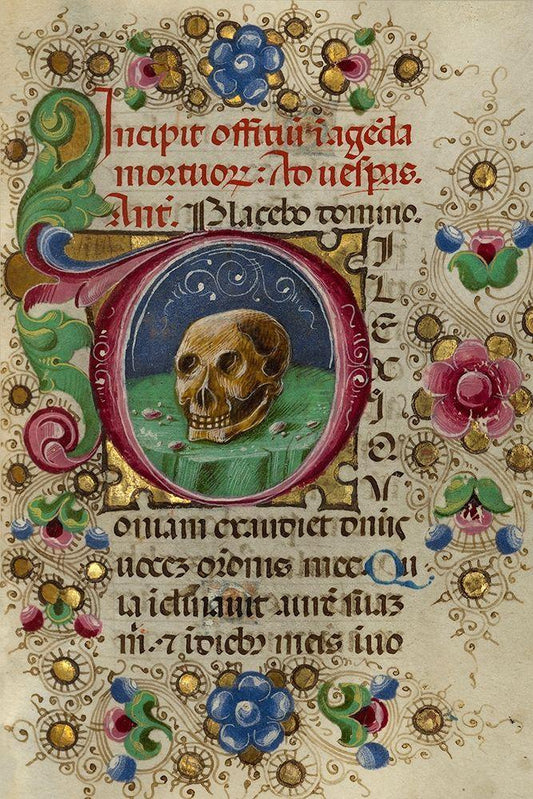 Incipit offitiū ī agēda
mortuorꝝ: Ad uespas.
Ant. Placebo domino.
DILEXIQV
oniam exaudiet dn̄s
uocez orōnis mee. Qu
ia īclinauit aurē suaz
m̄. ⁊ ī diebꝫ meis īuo